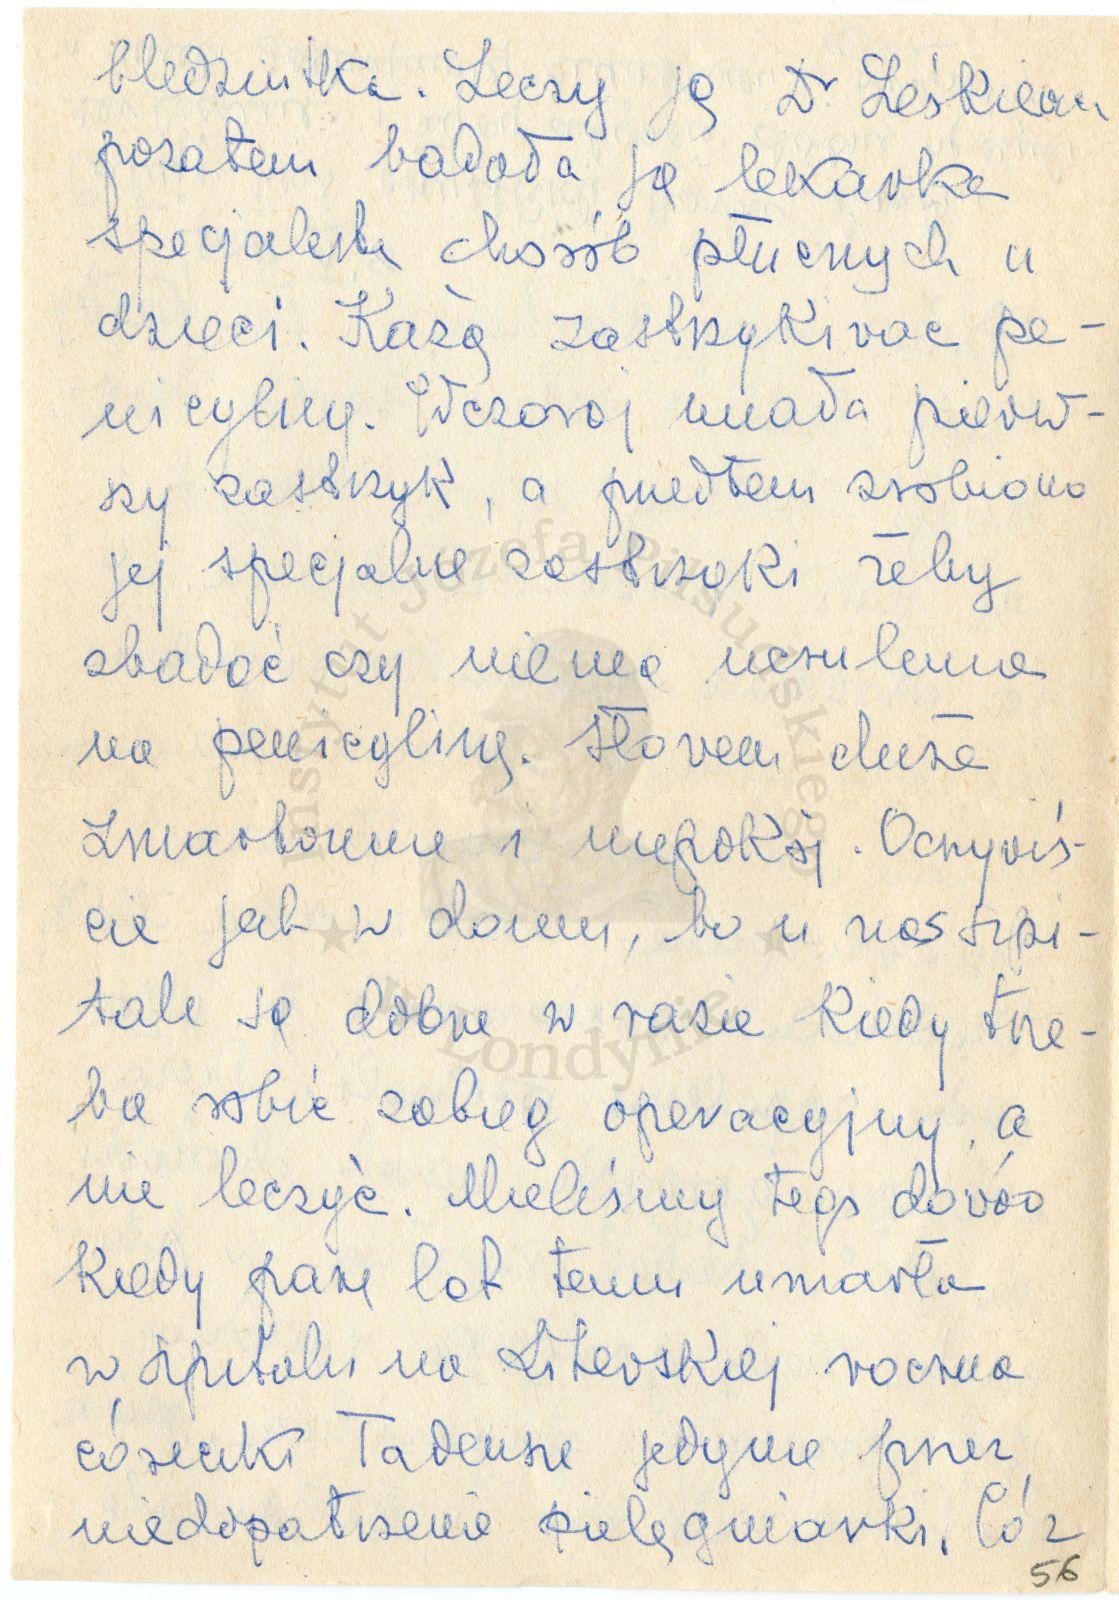 bledziutka. Leczy ją Dr Leśkiewi
pozatem badała ją lekarka
specjalistka chorób płucnych u
dzieci. Każą zastrzykiwac pe-
nicylinę. Wczoraj miała pierw-
szy zastrzyk, a przedtem zrobiono
jej specjalne zastrzyki żeby
zbadać czy niema uczulenia
na penicylinę. Słowem duże
zmartwienie i niepokój. Oczywiś-
cie jak w domu, bo u nas szpi-
tale są dobre w razie kiedy trze-
ba robić zabieg operacyjny, a
nie leczyć. Mieliśmy tego dowód
kiedy parę lat temu umarła
w szpitalu na Litewskiej roczna
córeczka Tadeusza jedynie przez
niedopatrzenie pielęgniarki. Cóż
56
Instytut Józefa Piłsudskiego
w Londynie